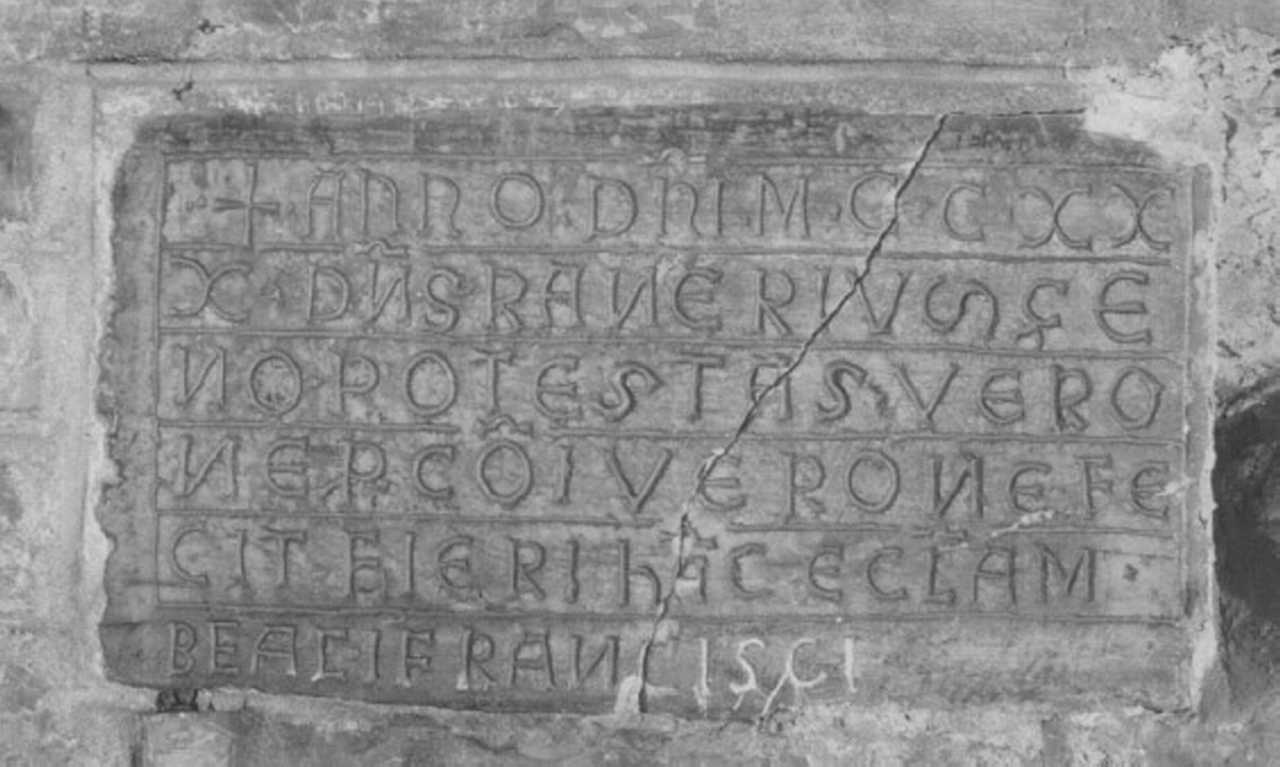 + ANNO DNI M C C XX
X DNS RANERIUS ÇE
NO POTESTAS VERO
NE P COI VERONE FE
CIT FIERI HAC ECLAM
BEATI FRANCISCI